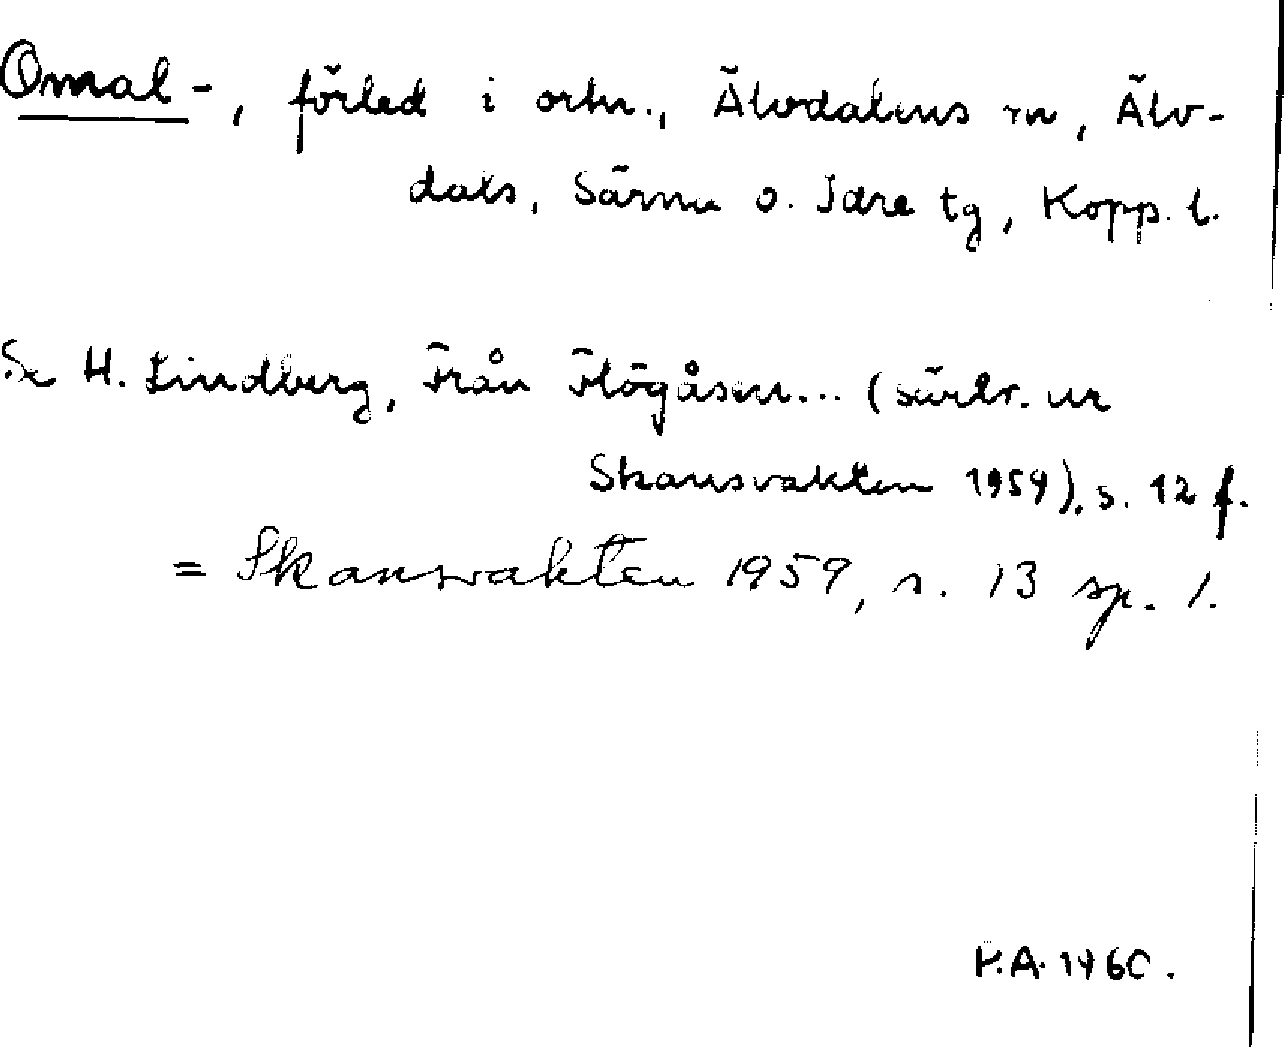 Omal-, förled i ortn., Älvdalens rn, Älv-
dals, Särna o. Idre tg, Kopp. l.
Se H. Lindberg, Från Högåsen... (särtr. ur
Skansvakten 1959), s. 12 f.
= Skansvakten 1959, s. 13 sp. 1.
P.A. 1960.